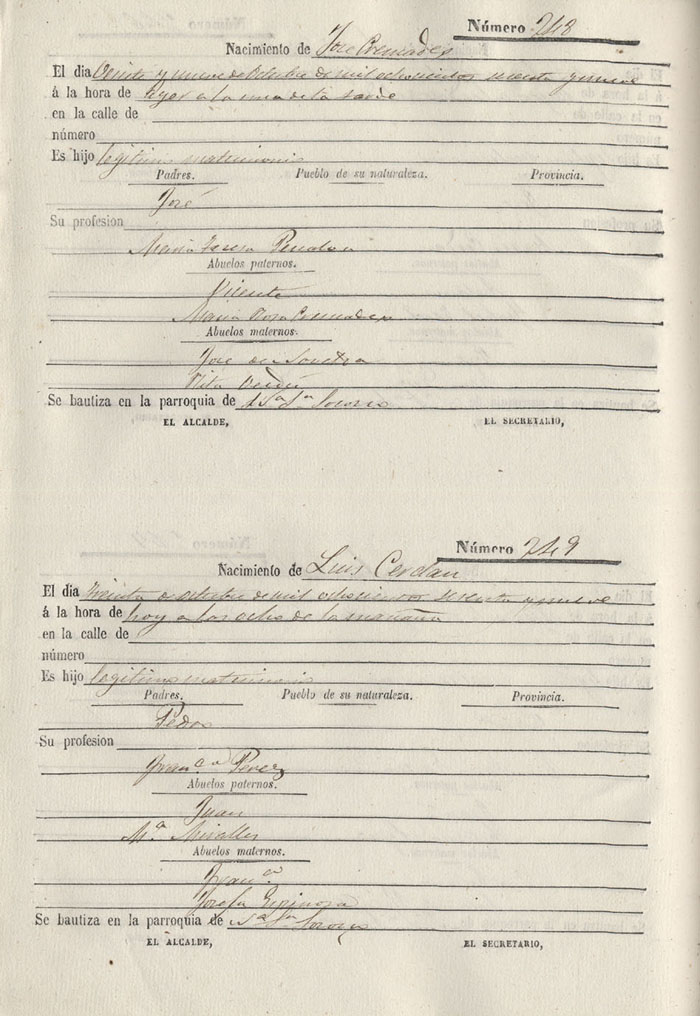 Número 248
Nacimiento de Jose Cremades
El dia Veinte y nueve de Octubre de mil ochocientos sesenta y nueve
á la hora de ayer a la una de la tarde
en la calle de
número
Es hijo legitimo matrimonio
Padres. Pueblo de su naturaleza. Provincia.
José
Su profesion
Maria Teresa Penalva
Abuelos paternos.
Vicente
Maria Rosa Cremades
Abuelos maternos.
Jose
Rita Verdú
Se bautiza en la parroquia de
EL ALCALDE, EL SECRETARIO,
Número 249
Nacimiento de Luis Cerdan
El dia treinta de Octubre de mil ochocientos sesenta y nueve
á la hora de hoy a las ocho de la mañana
en la calle de
número
Es hijo legitimo matrimonio
Padres. Pueblo de su naturaleza. Provincia.
Pedro
Su profesion
Franca Perez
Abuelos paternos.
Juan
Mª Miralles
Abuelos maternos.
Josefa Espinosa
Se bautiza en la parroquia de
EL ALCALDE, EL SECRETARIO,